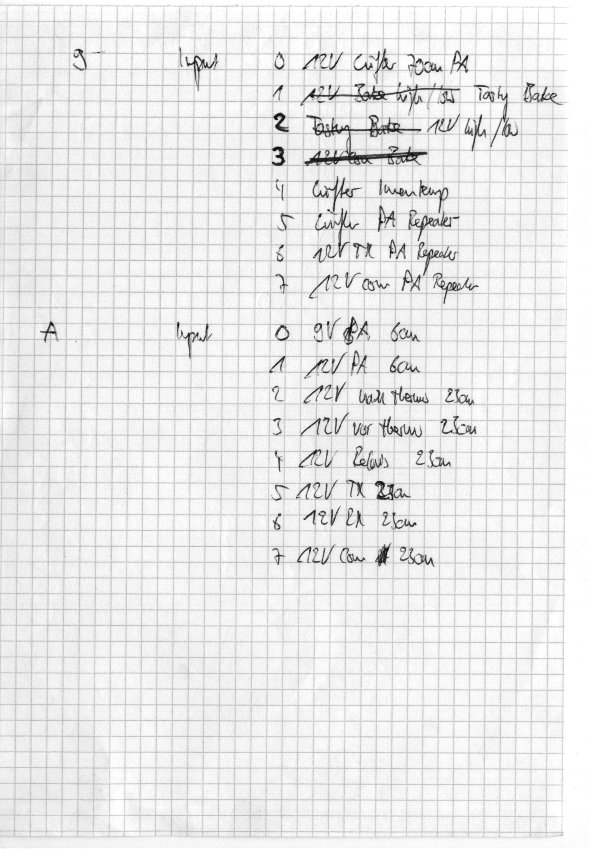 9 Input 0 12V Lüfter 70cm PA
1 12V Bake high/low Tasty Bake
2 Tasty Bake 12V high/low
3 12V com Bake
4 Lüfter Innentemp
5 Lüfter PA Repeater
6 12V TX PA Repeater
7 12V com PA Repeater
A Input 0 9V PA 6cm
1 12V PA 6cm
2 12V nach thermo 23cm
3 12V vor thermo 23cm
4 12V Relais 23cm
5 12V TX 23cm
6 12V RX 23cm
7 12V com 23cm